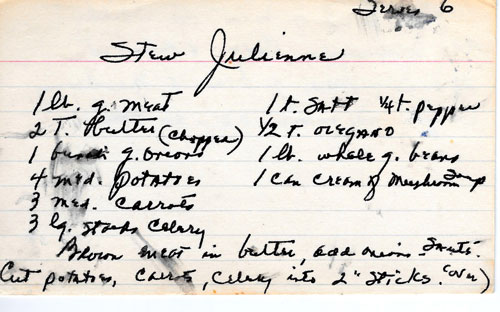 Serves 6
Stew Julienne
1 lb. g. meat 1 t. Salt 1/4 t. pepper
2 T. Butter (chopped) 1/2 t. OREGANO
1 bunch g. onions 1 lb. whole g. beans
4 med. potatoes 1 can cream of Mushroom Soup
3 med. carrots
3 lg. stalks Celery
Brown meat in butter, add onions. Sauté.
Cut potatoes, carrots, celery into 2" sticks. (over)